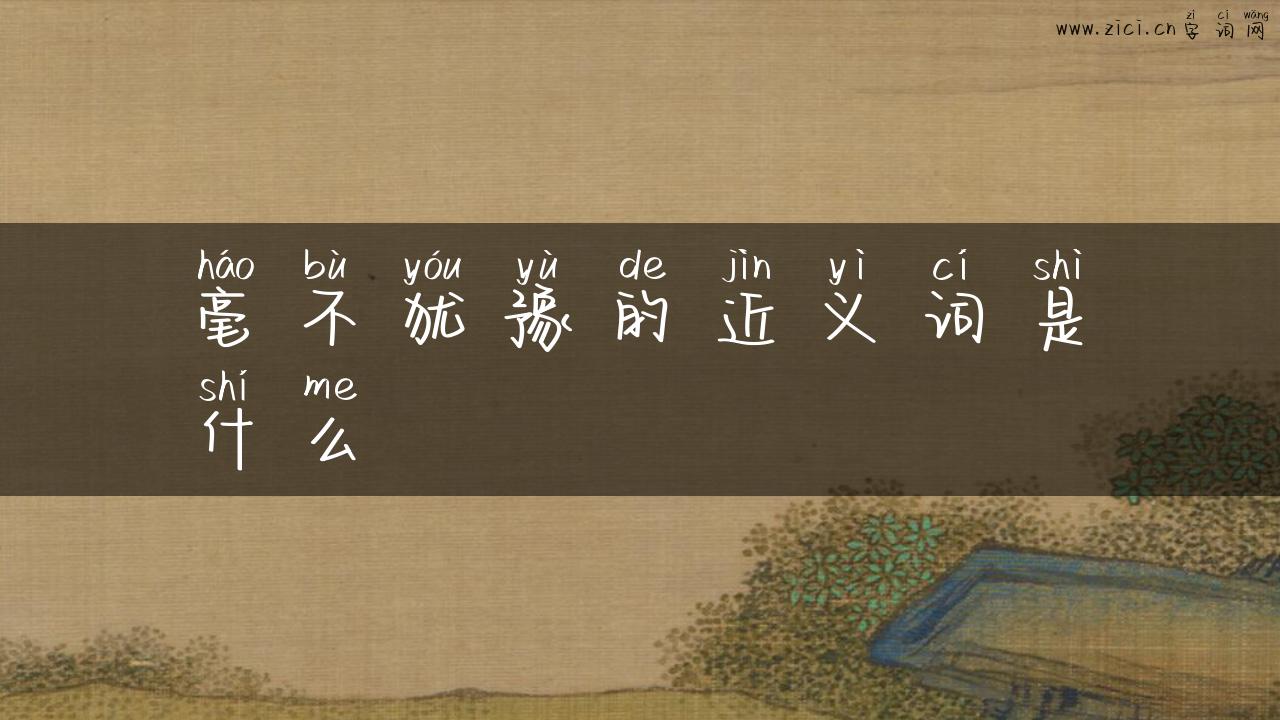 zì cí wǎng
www.zici.cn 字词网
háo bù yóu yù de jìn yì cí shì
毫不犹豫的近义词是
shí me
什么